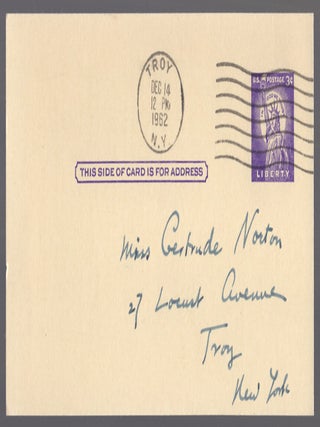 TROY
DEC 14
12 PM
1962
N.Y.
U.S. POSTAGE 3¢
LIBERTY
THIS SIDE OF CARD IS FOR ADDRESS
Miss Gertrude Norton
27 Locust Avenue
Troy
New York